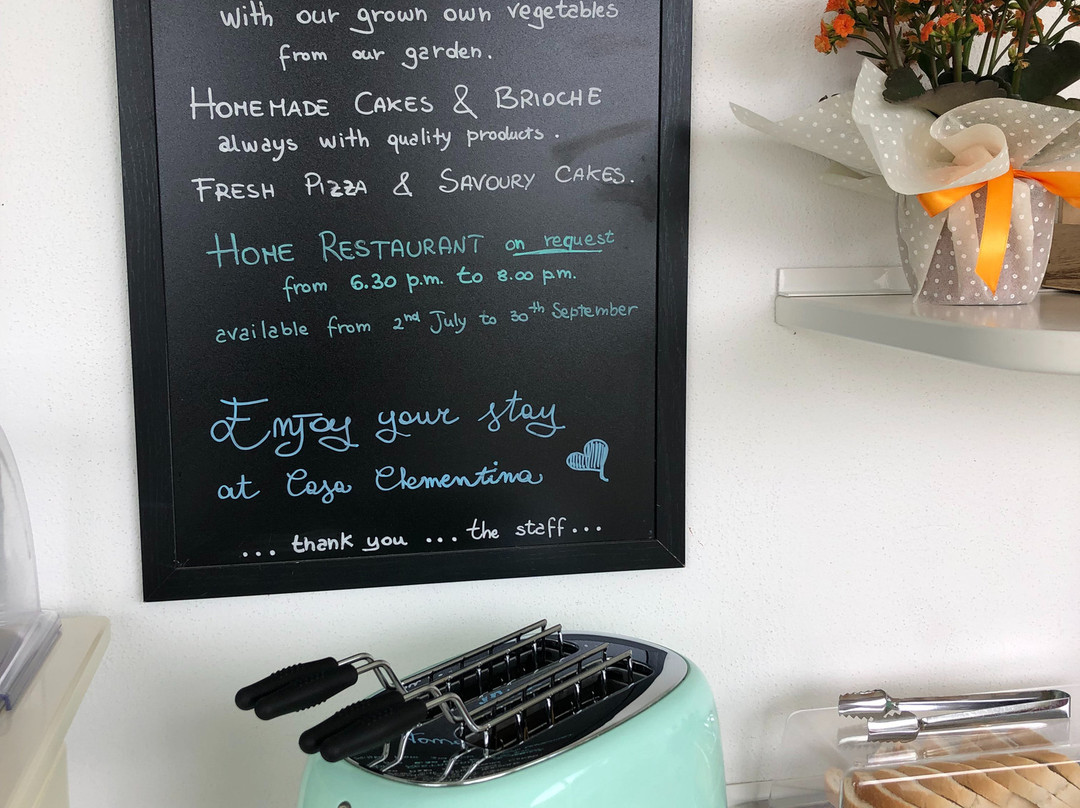 with our grown own vegetables
from our garden.
HOMEMADE CAKES & BRIOCHE
always with quality products.
FRESH PIZZA & SAVOURY CAKES.
HOME RESTAURANT on request
from 6.30 p.m. to 8.00 p.m.
available from 2nd July to 30th September
Enjoy your stay
at Casa Clementina
... thank you ... the staff...